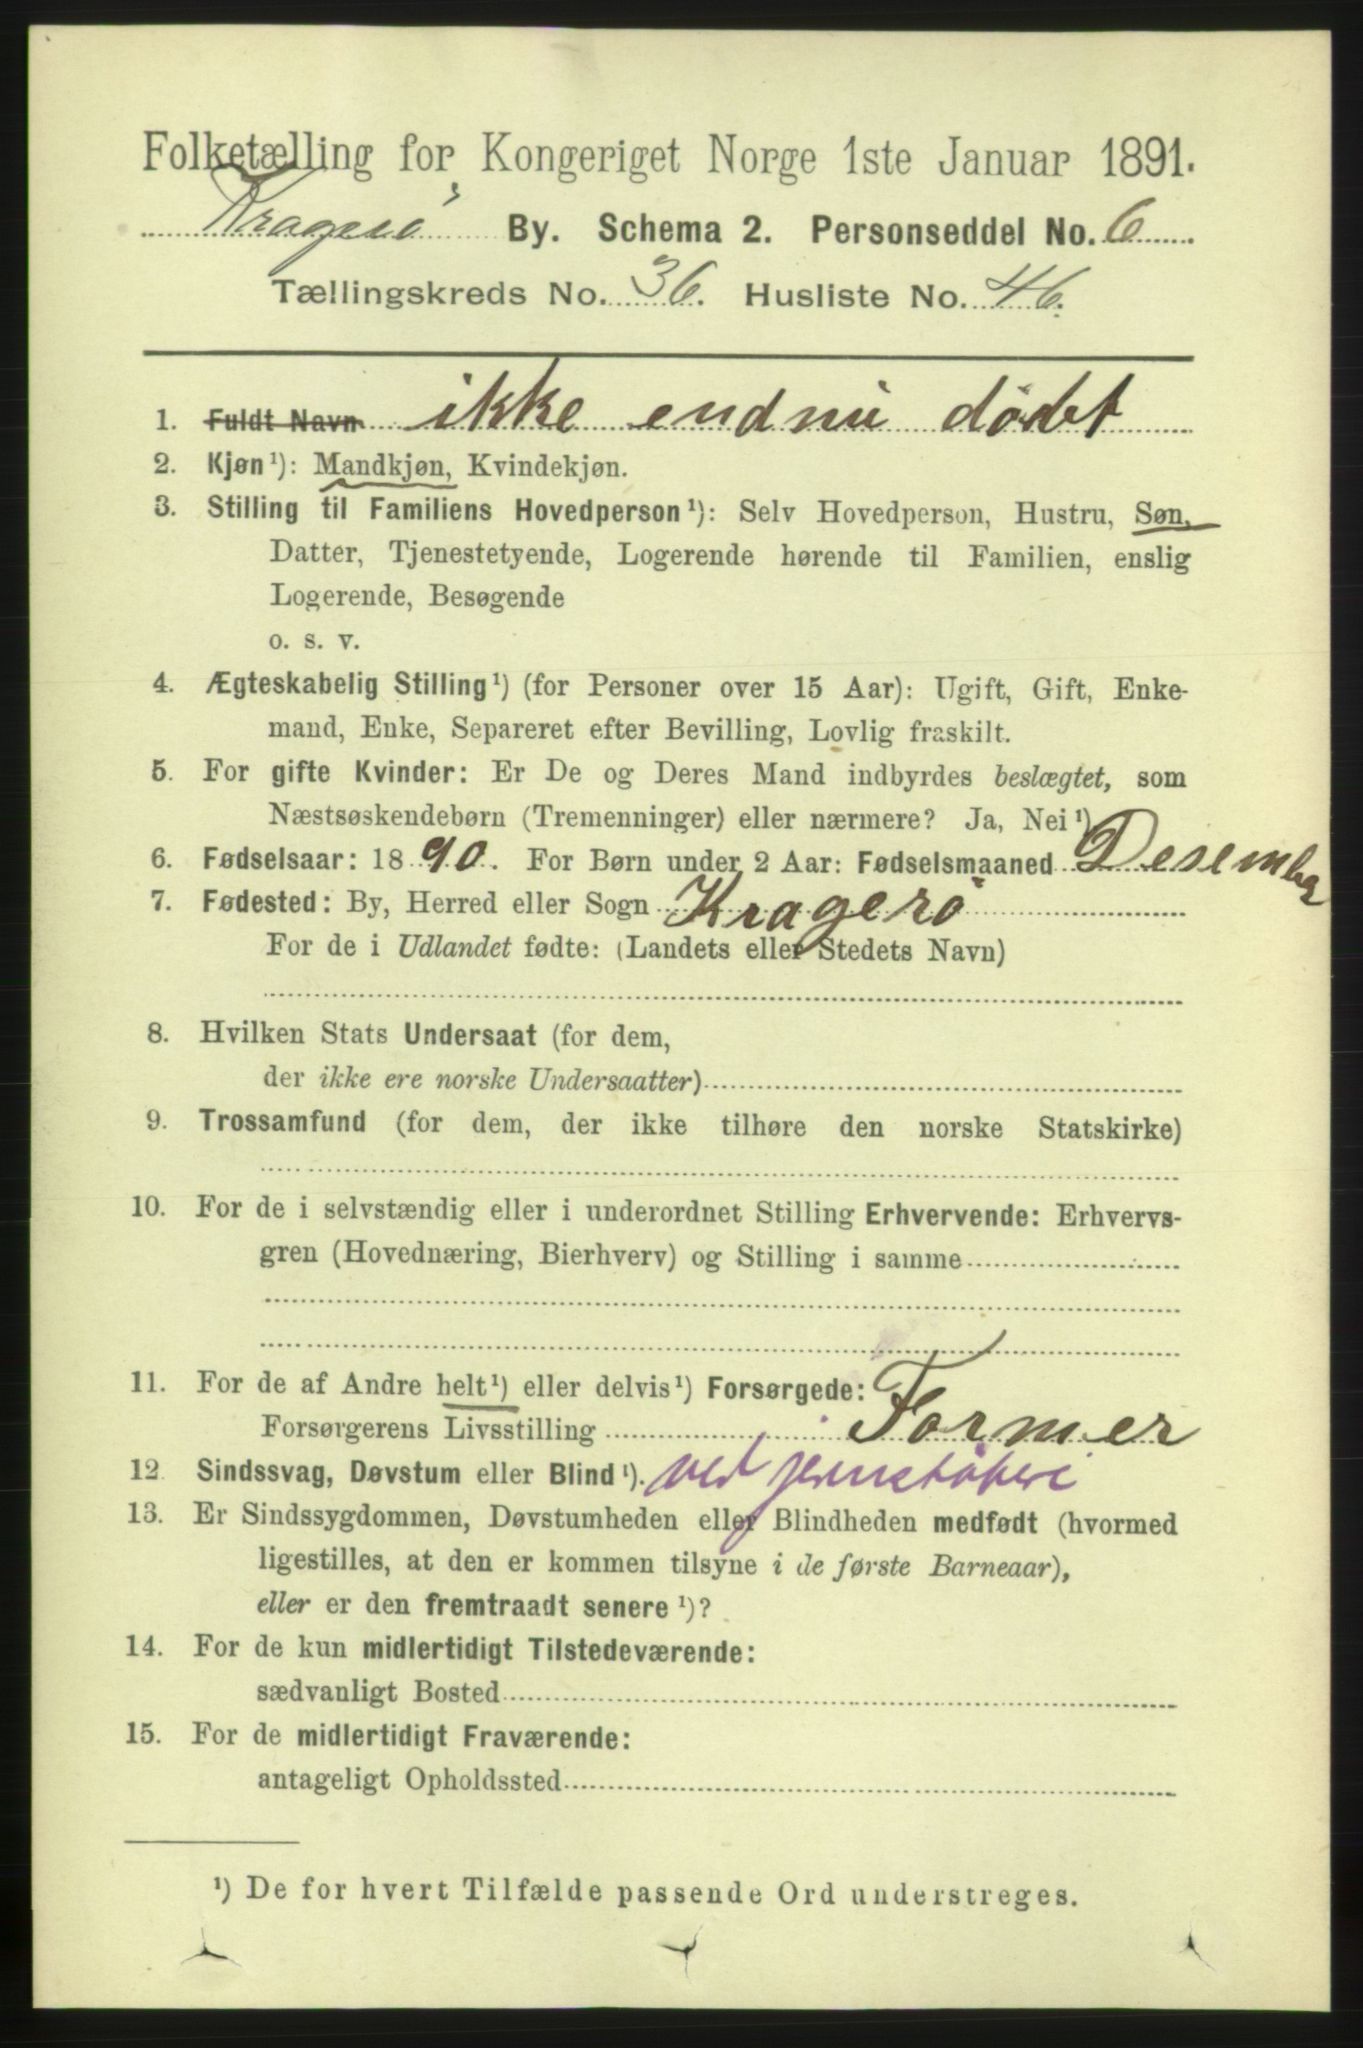 Folketælling for Kongeriget Norge 1ste Januar 1891.
Kragerö By. Schema 2. Personseddel No. 6
Tællingskreds No. 36. Husliste No. 46.
1. Fuldt Navn ikke endnu dödet
2. Kjøn¹): Mandkjøn, Kvindekjøn.
3. Stilling til Familiens Hovedperson¹): Selv Hovedperson, Hustru, Søn,
Datter, Tjenestetyende, Logerende hørende til Familien, enslig
Logerende, Besøgende
o. s. v.
4. Ægteskabelig Stilling¹) (for Personer over 15 Aar): Ugift, Gift, Enke-
mand, Enke, Separeret efter Bevilling, Lovlig fraskilt.
5. For gifte Kvinder: Er De og Deres Mand indbyrdes beslægtet, som
Næstsøskendebørn (Tremenninger) eller nærmere? Ja, Nei¹)
6. Fødselsaar: 1890. For Børn under 2 Aar: Fødselsmaaned Desember
7. Fødested: By, Herred eller Sogn Kragerö
For de i Udlandet fødte: (Landets eller Stedets Navn)
8. Hvilken Stats Undersaat (for dem,
der ikke ere norske Undersaatter)
9. Trossamfund (for dem, der ikke tilhøre den norske Statskirke)
10. For de i selvstændig eller i underordnet Stilling Erhvervende: Erhvervs-
gren (Hovednæring, Bierhverv) og Stilling i samme
11. For de af Andre helt¹) eller delvis¹) Forsørgede:
Forsørgerens Livsstilling Former
12. Sindssvag, Døvstum eller Blind¹). ved jernstøberi
13. Er Sindssygdommen, Døvstumheden eller Blindheden medfødt (hvormed
ligestilles, at den er kommen tilsyne i de første Barneaar),
eller er den fremtraadt senere¹)?
14. For de kun midlertidigt Tilstedeværende:
sædvanligt Bosted
15. For de midlertidigt Fraværende:
antageligt Opholdssted
¹) De for hvert Tilfælde passende Ord understreges.